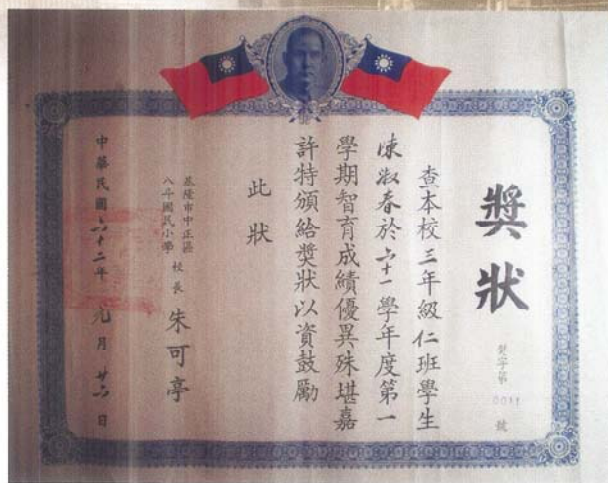 獎狀
獎字第0011號
查本校三年級仁班學生
陳淑春於六十一學年度第一
學期智育成績優異殊堪嘉
許特頒給獎狀以資鼓勵
此狀
基隆市中正區
八斗國民小學
校長 朱可亭
中華民國六十二年元月廿六日